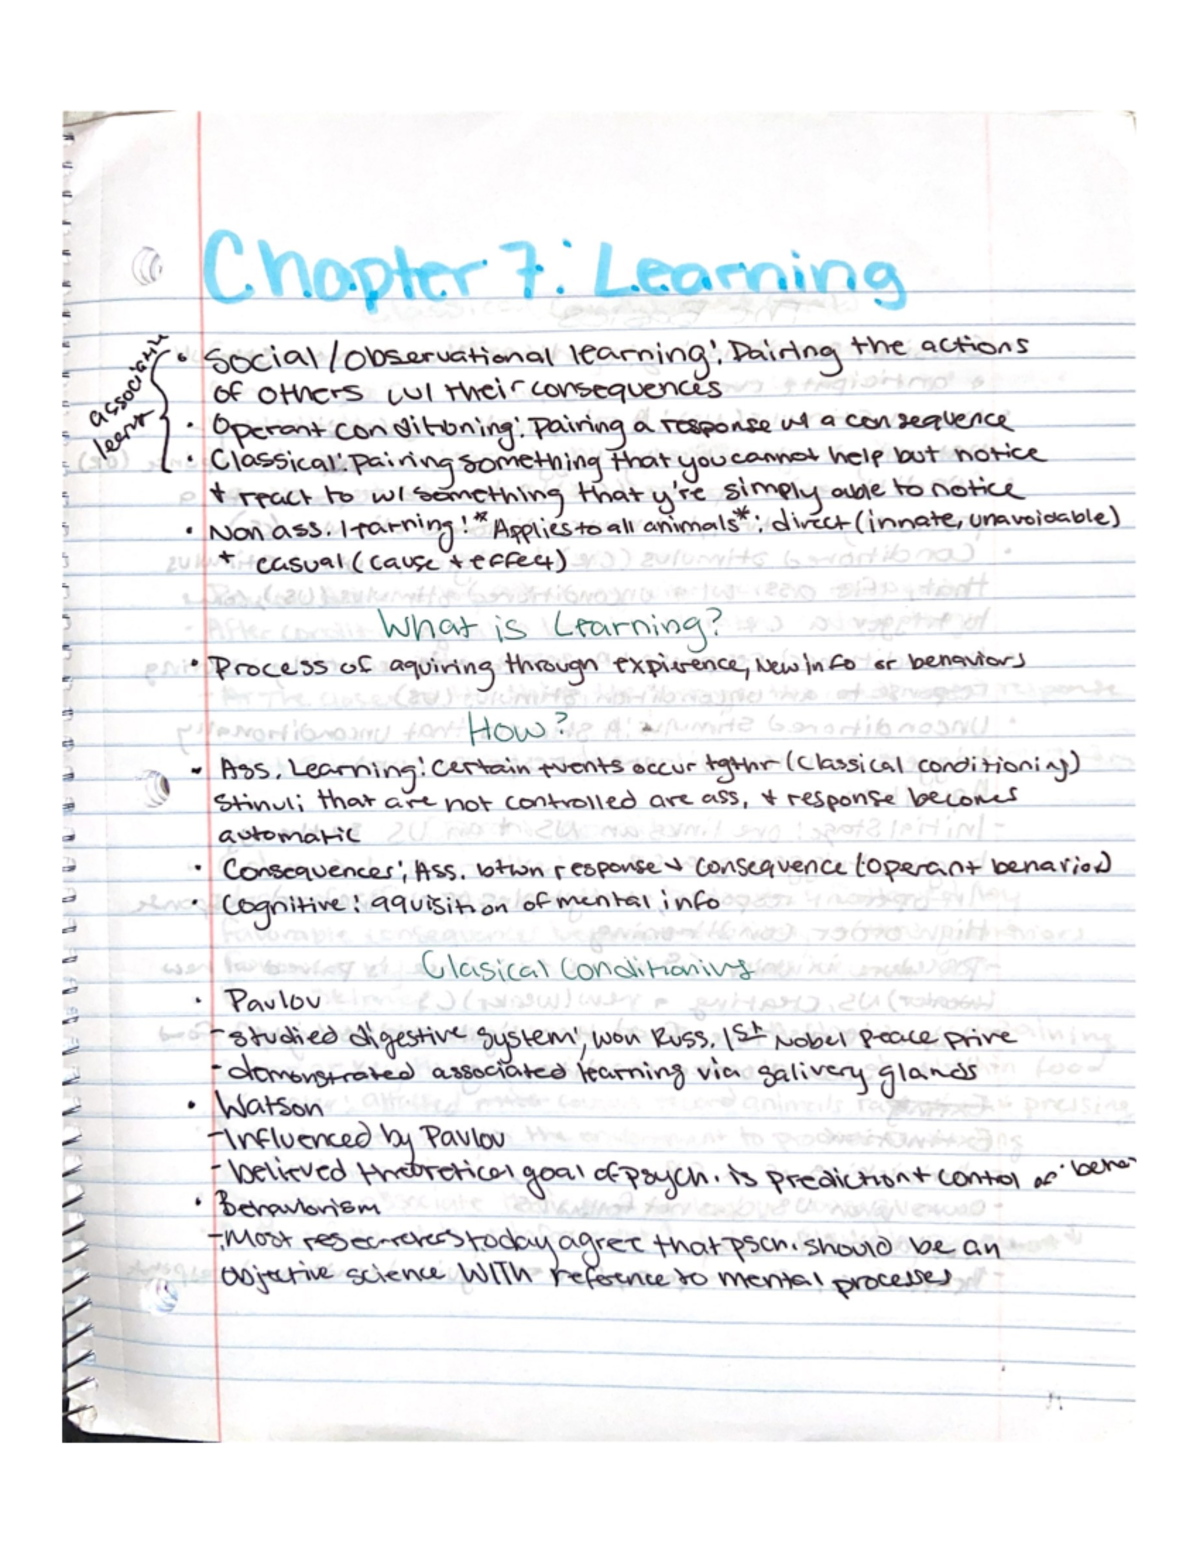 Chapter 7: Learning
associative
learn
• Social/observational learning: Pairing the actions
of others w/ their consequences
• Operant conditioning: pairing a response w/ a consequence
• Classical: pairing something that you cannot help but notice
+ react to w/ something that y're simply able to notice
• Non ass. learning: *Applies to all animals*: direct (innate, unavoidable)
+ casual (cause + effect)
What is Learning?
• Process of aquiring through expierence, new info or behaviors
How?
• Ass. Learning: certain events occur tgthr (classical conditioning)
Stimuli that are not controlled are ass, + response becomes
automatic
• Consequences: Ass. btwn response + consequence (operant behavior)
• Cognitive: aquisition of mental info
Clasical Conditioning
• Pavlov
- studied digestive system; won Russ. 1st Nobel peace prize
- demonstrated associated learning via salivery glands
• Watson
- Influenced by Pavlov
- believed theoretical goal of psych. is prediction + control of behav
• Behaviorism
- Most researchers today agree that psch. should be an
objective science WITH reference to mental processes